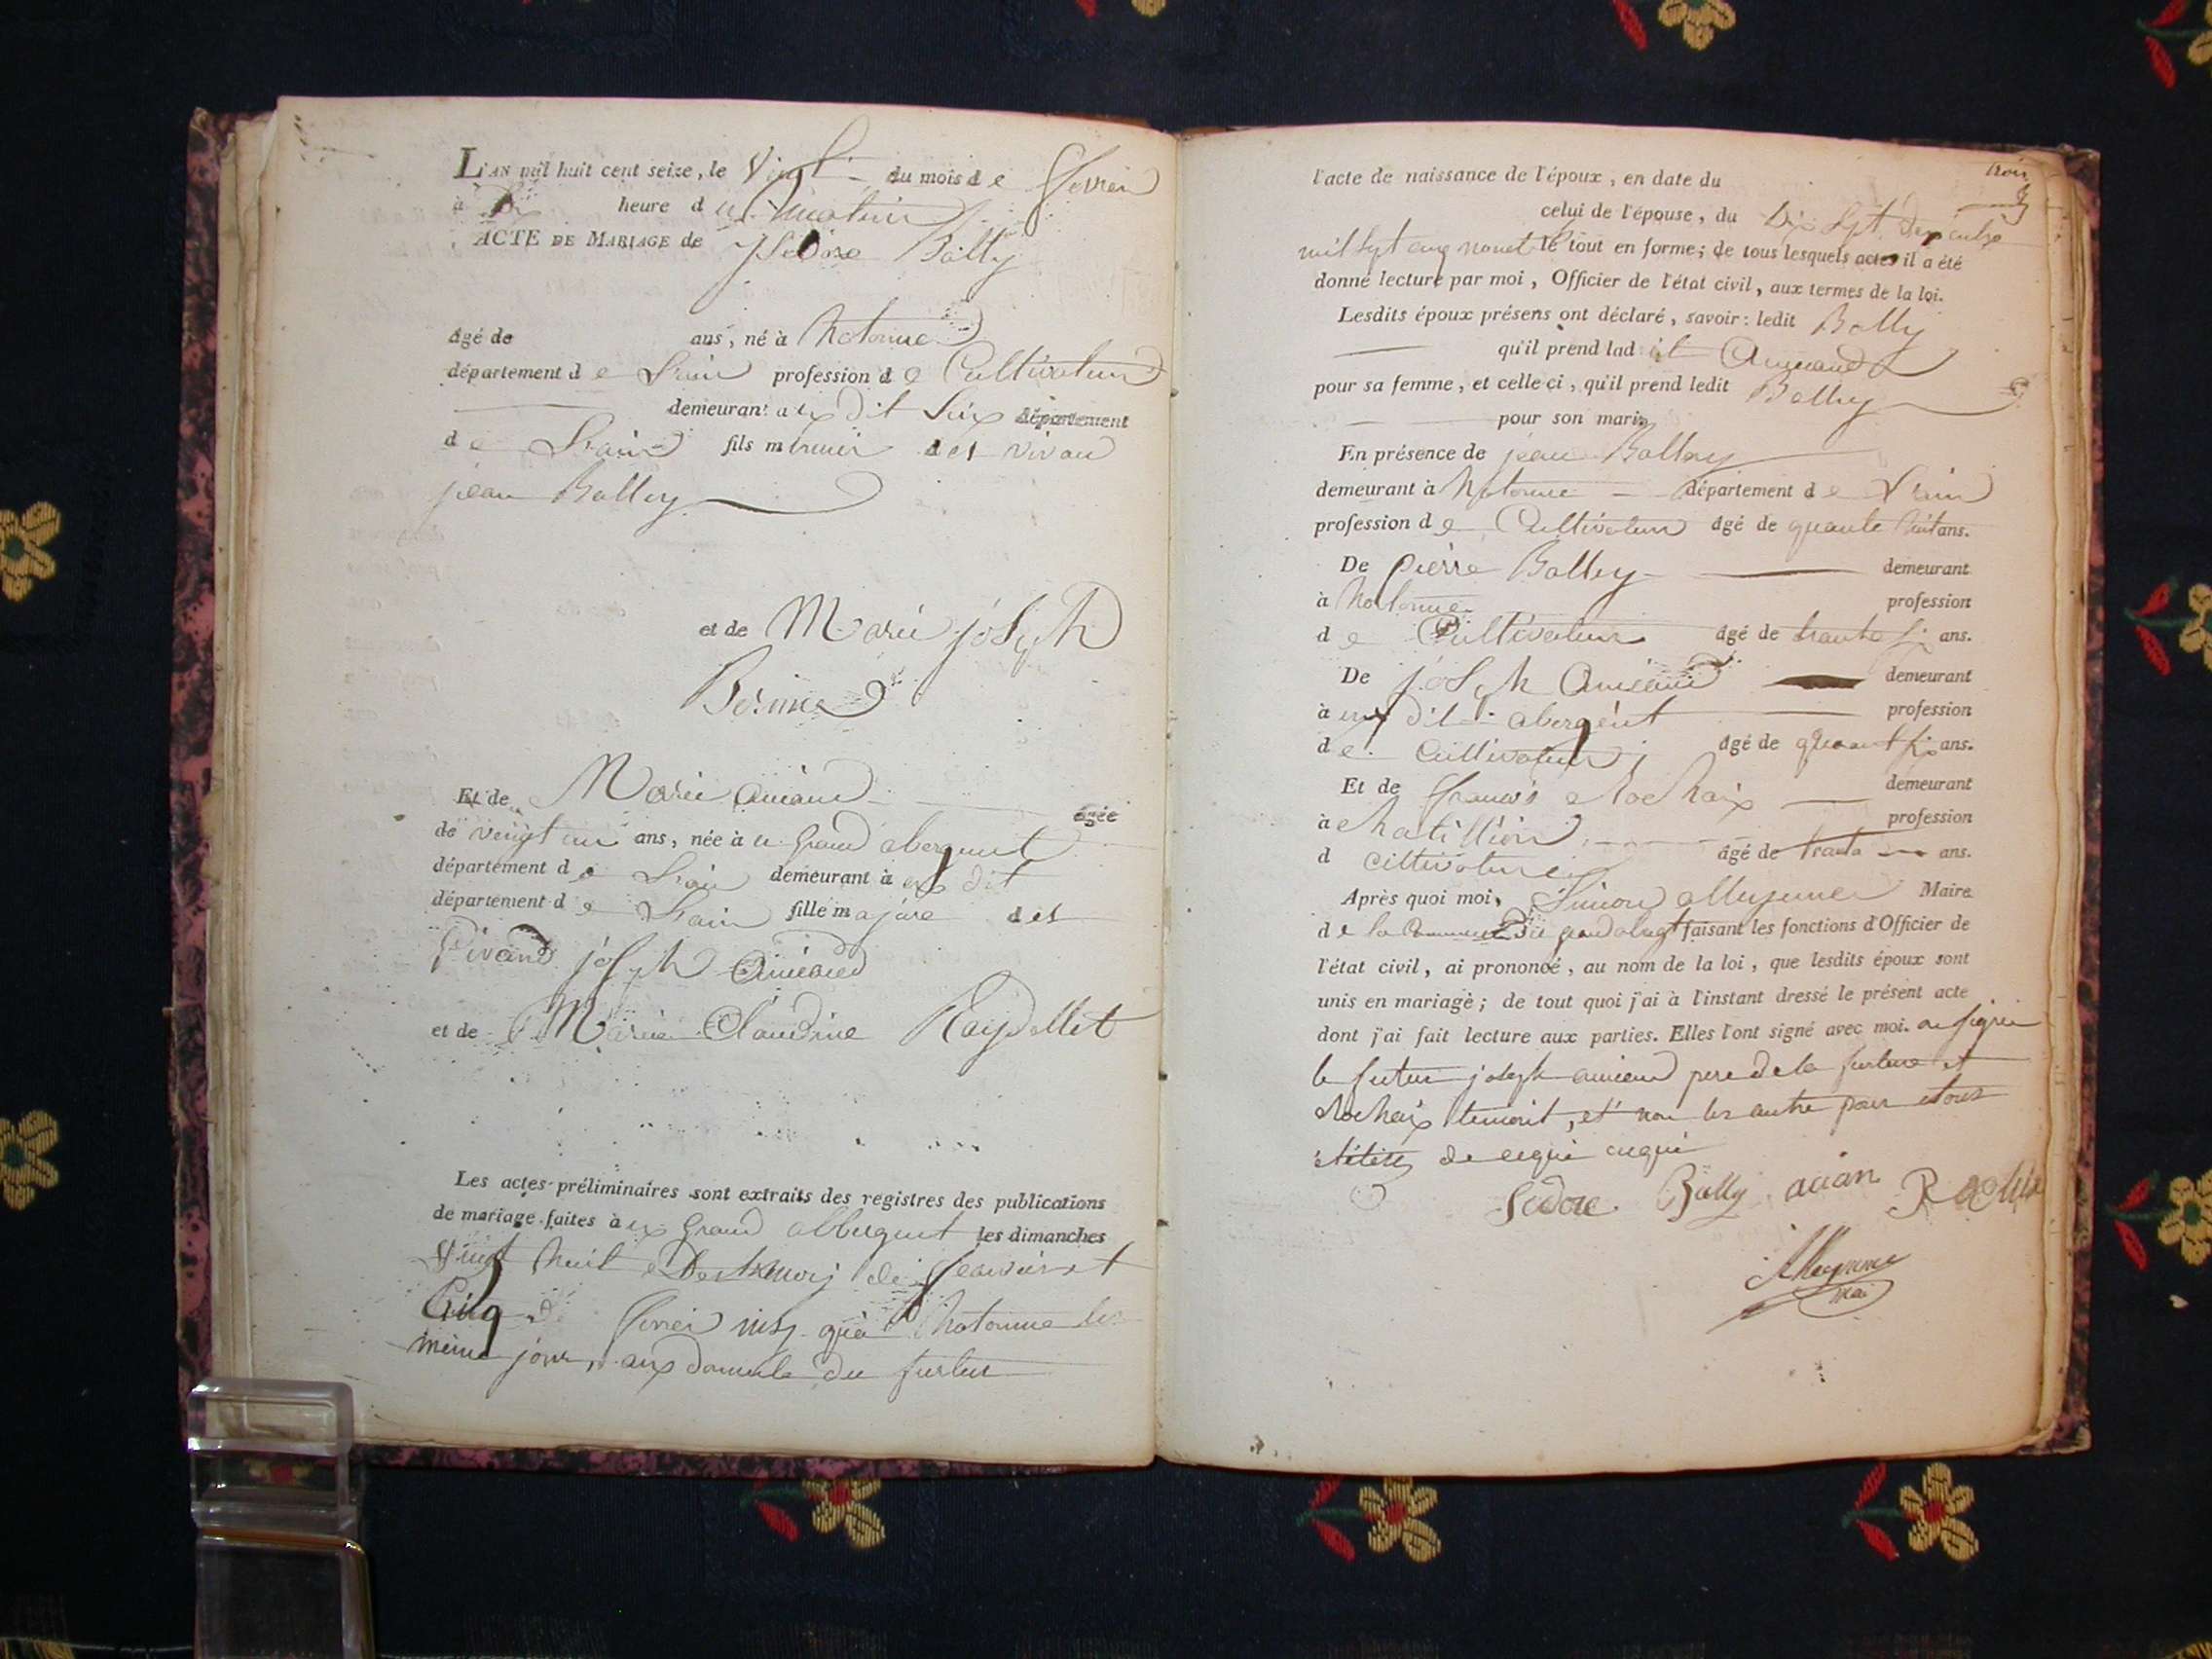 L'AN mil huit cent seize, le Vingt du mois d e fevrier
à Dix heure d u matin
ACTE DE MARIAGE de Ysidore Bally
âgé de ans, né à hotonne
département d e Lain profession d e Cultivateur
demeurant a u dit Lieux département
d e Lain fils m ineur d es vivan
jean Balley
et de Marie joseph
Et de Marie Anieand âgée
de vengt un ans, née à u grand abergent
département d e Lain demeurant à u dit
département d e Lain fille m ajure d es
Vivand joseph Anieand
et de Marie Claudine Raydellet
Les actes préliminaires sont extraits des registres des publications
de mariage faites à u Grand abbergent les dimanches
Vingt huit du mois de janvier et
Cinq de fevrier insy qua hotonne les
même jour, aux domicile du furtur
trois
l'acte de naissance de l'époux, en date du
celui de l'épouse, du Dix Sept
mil Sept cenq le tout en forme; de tous lesquels actes il a été
donné lecture par moi, Officier de l'état civil, aux termes de la loi.
Lesdits époux présens ont déclaré, savoir: ledit Bally
qu'il prend lad it
pour sa femme, et celle ci, qu'il prend ledit Balley
pour son mari.
En présence de jean Balley
demeurant à hotonne département d e Lain
profession d e Cultivateur âgé de quante huit ans.
De pierre Balley demeurant
à hotonne profession
d e Cultivateur âgé de trante six ans.
De joseph Anieand demeurant
à u dit abergent profession
d e Cultivateur âgé de quarant six ans.
Et de françois Rochaix demeurant
à Chatillion profession
d Cultivateur âgé de trante ans.
Après quoi moi, Simon Maire
d e la Commune du grand abergt faisant les fonctions d'Officier de
l'état civil, ai prononcé, au nom de la loi, que lesdits époux sont
unis en mariage; de tout quoi j'ai à l'instant dressé le présent acte
dont j'ai fait lecture aux parties. Elles l'ont signé avec moi. on signée
le futur joseph anieand pere de la furture et
Rochaix temoint, et non les autre pour etous
de ceque
Sidore Bally Rochaix